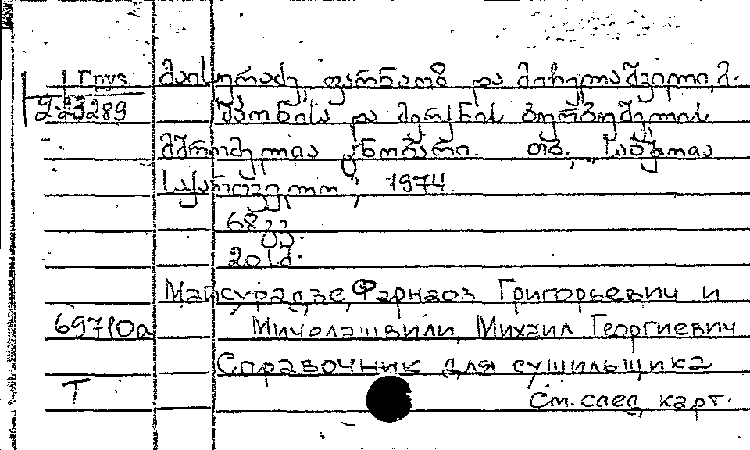 Груз მაისურაძე, ფარნაოზ და მიჩელაშვილი, მ.
223289 შაონისა და მერქნის
მშრომელთა ცნობარი. თბ., „საბჭოთა
საქართველო“, 1974
68 გვ.
20 სმ.
Майсурадзе, Фарнаоз Григорьевич и
69710а Мичелашвили, Михаил Георгиевич
Справочник для сушильщика
Т См. след. карт.